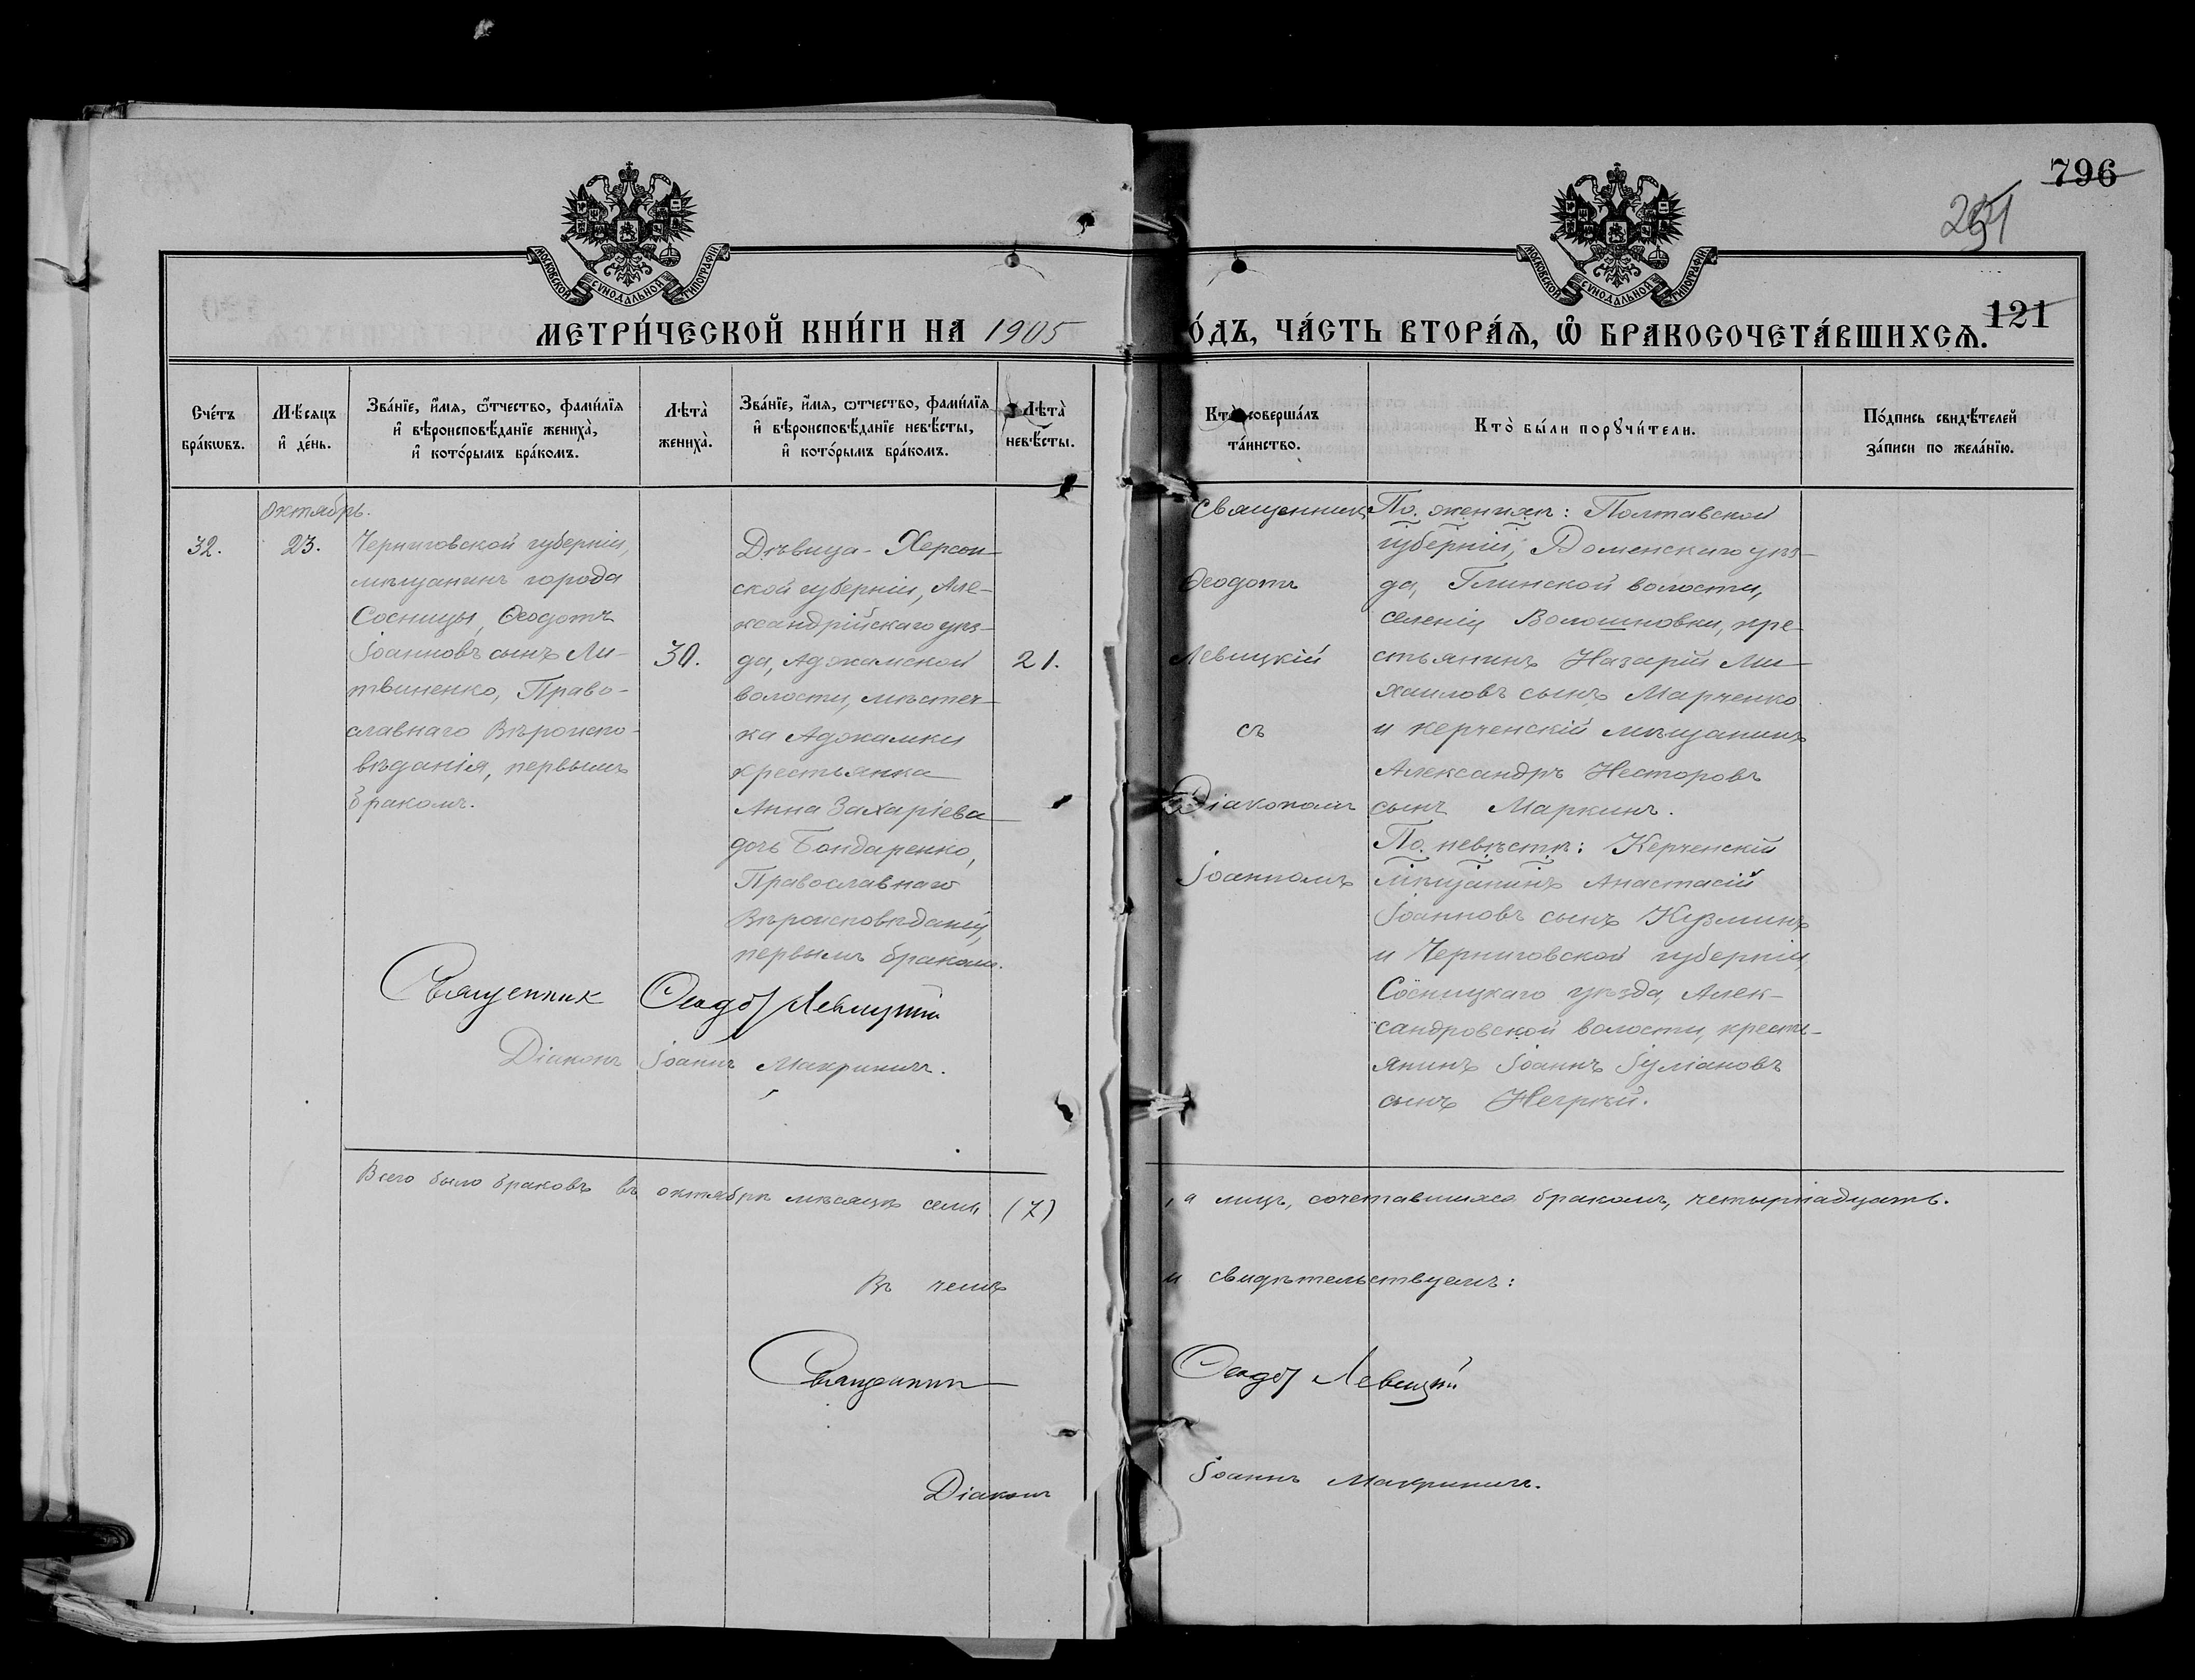 796
251
121
МОСКОВСКОЙ СѴНОДАЛЬНОЙ ТИПОГРАФІИ
МОСКОВСКОЙ СѴНОДАЛЬНОЙ ТИПОГРАФІИ
МЕТРИ́ЧЕСКОЙ КНИ́ГИ НА 1905
О́ДЪ, ЧА́СТЬ ВТОРА́Ѧ, Ѡ҆ БРАКОСОЧЕТА́ВШИХСѦ.
Сче́тъ
бра́кѡвъ.
Мѣ́сѧцъ
и҆ де́нь.
Зва́нїе, и҆́мѧ, ѻ҆́тчество, фами́лїѧ
и҆ вѣроисповѣ́данїе жениха̀,
и҆ кото́рымъ бра́комъ.
Лѣта̀
жениха̀.
Зва́нїе, и҆́мѧ, ѻ҆тчество, фами́лїѧ
и҆ вѣроисповѣ́данїе невѣ́сты,
и҆ кото́рымъ бра́комъ.
Лѣта̀
невѣ́сты.
Кто̀ соверша́лъ
та́инство.
Кто̀ бы́ли порꙋчи́тели.
По́дпись свидѣ́телей
за́писи по жела́нїю.
октябрь.
32.
23.
Черниговской губерніи,
мѣщанинъ города
Сосницы, Ѳеодотъ
Іоанновъ сынъ Ли-
твиненко, Право-
славнаго Вѣроиспо-
вѣданія, первымъ
бракомъ.
30.
Дѣвица - Херсон-
ской губерніи, Але-
ксандрійскаго уѣз-
да, Аджамской
волости, мѣстеч-
ка Аджамки
крестьянка
Анна Захаріева
дочь Бондаренко,
Православнаго
Вѣроисповѣданія,
первымъ бракомъ.
21.
Священникъ
Ѳеодотъ
Левицкій
съ
Діакономъ
Іоанномъ
По женихѣ: Полтавской
губерніи, Роменскаго уѣз-
да, Глинской волости,
селенія Волошновки, кре-
стьянинъ Назарій Ми-
хаиловъ сынъ Марченко
и керченскій мѣщанинъ
Александръ Несторовъ
сынъ Маркинъ.
По невѣстѣ: Керченскій
мѣщанинъ Анастасій
Іоанновъ сынъ Кузминъ
и Черниговской губерніи,
Сосницкаго уѣзда, Алек-
сандровской волости, кресть-
янинъ Іоаннъ Іуліановъ
сынъ Негрѣй.
Священник Ѳеодот Левицкій
Діаконъ Іоаннъ Макринич.
Всего было браковъ въ октябрѣ мѣсяцѣ семь (7)
, а лицъ, сочетавшихся бракомъ, четырнадцать.
Въ чемъ
и свидѣтельствуемъ:
Священник
Ѳеодот Левицкій
Діаконъ
Іоаннъ Макринич.